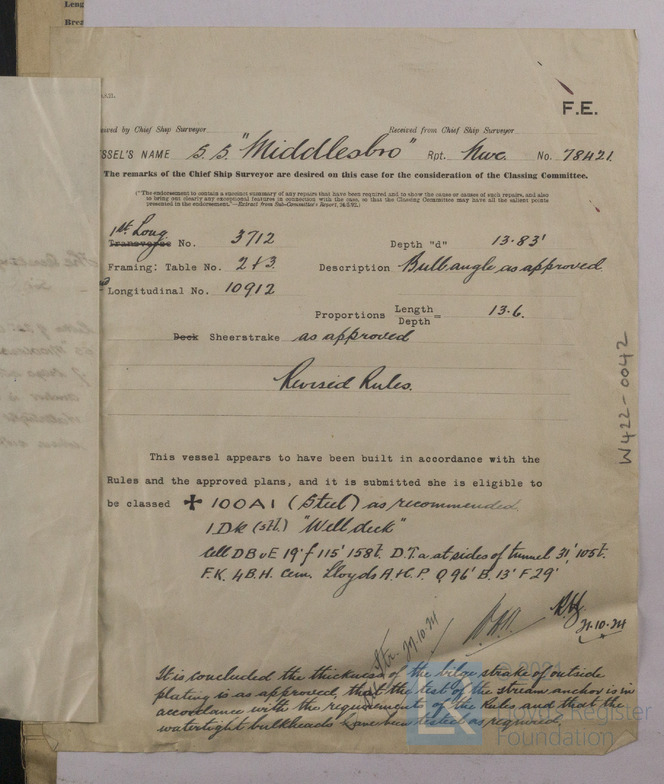 Leng
Brea
F.E.
ived by Chief Ship Surveyor Received from Chief Ship Surveyor
SSEL'S NAME S.S. "Middlesbro" Rpt. Nwc. No. 78421.
The remarks of the Chief Ship Surveyor are desired on this case for the consideration of the Classing Committee.
("The endorsement to contain a succinct summary of any repairs that have been required and to show the cause or causes of such repairs, and also
to bring out clearly any exceptional features in connection with the case, so that the Classing Committee may have all the salient points
presented in the endorsement."—Extract from Sub-Committee's Report,
1st Long
Transverse No. 3712 Depth "d" 13.83'
Framing: Table No. 2 & 3 Description Bulb angle as approved
Longitudinal No. 10912
Proportions Length
Depth = 13.6.
Deck Sheerstrake as approved
Revised Rules.
This vessel appears to have been built in accordance with the
Rules and the approved plans, and it is submitted she is eligible to
be classed ✠ 100A1 (Steel) as recommended.
1 Dk (stl) "Well deck"
Cell D B u E 19' f 115' 158t. D.T.a. at sides of tunnel 31' 105t.
F.K. 4 B.H. Cem. Lloyds A & C.P. Q 96' B. 13' F 29'
21.10.24
It is concluded the thickness of the bilge strake of outside
plating is as approved, that the test of the stream anchor is in
accordance with the requirements of the Rules and that the
watertight bulkheads have been tested as required.
W422-0042
Lloyd's Register
Foundation